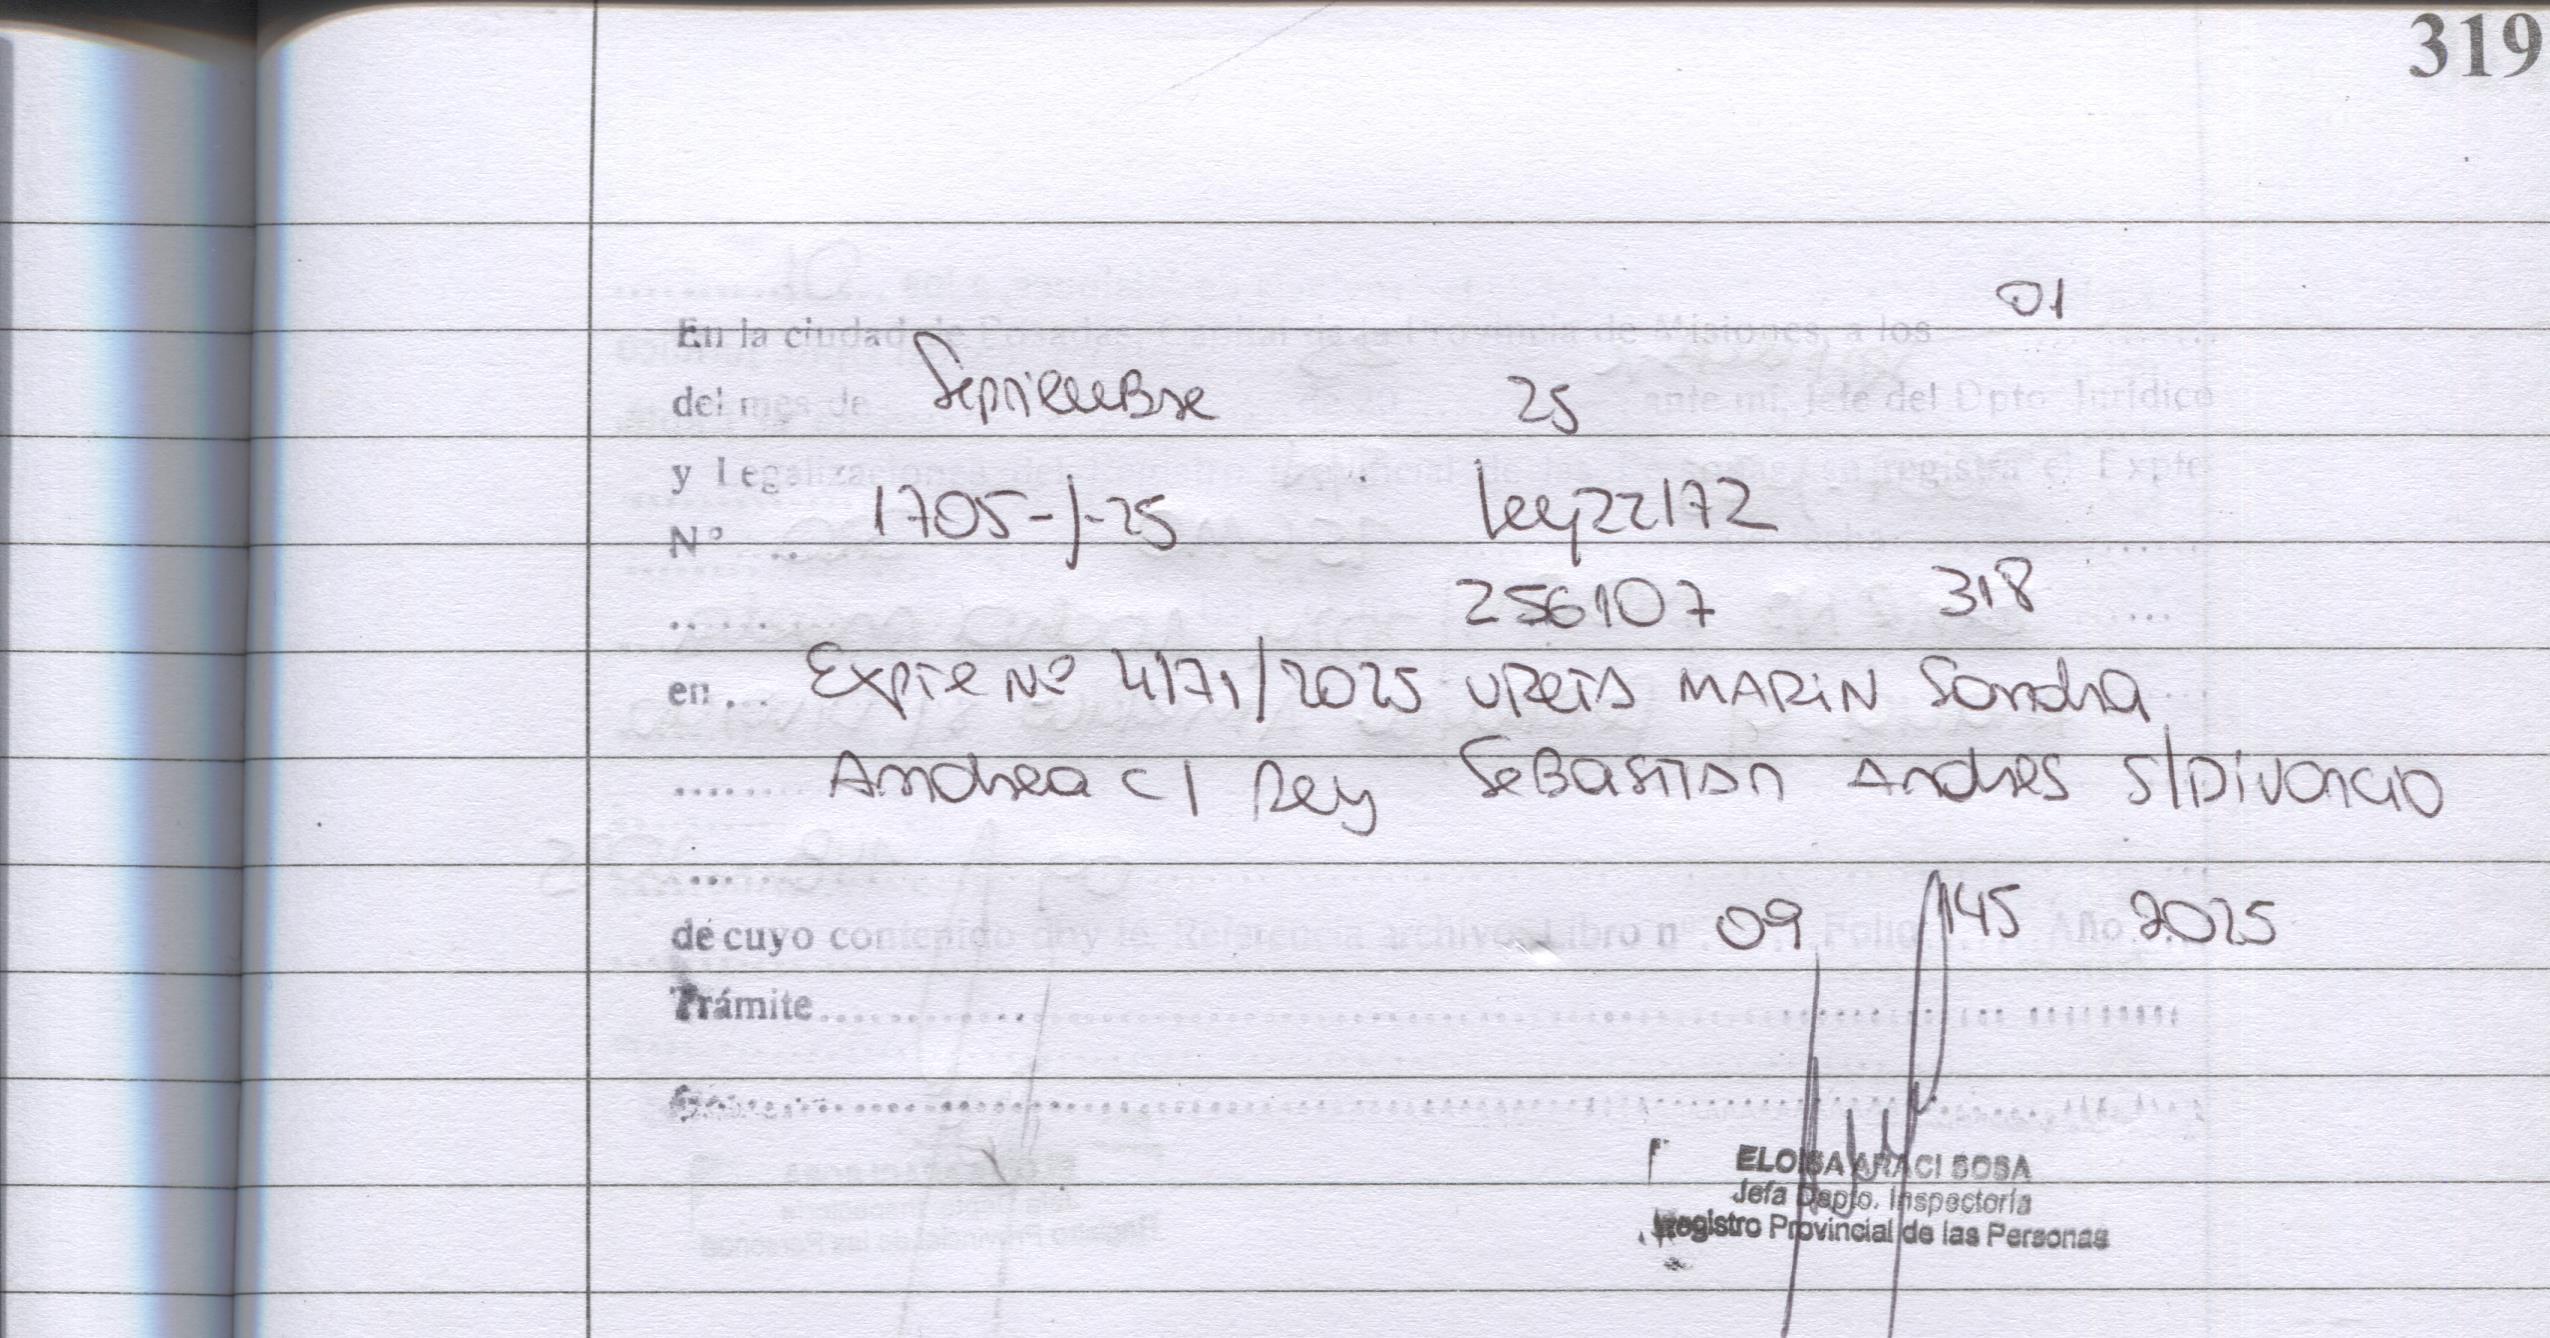 319
01
En la ciudad de Posadas, Capital de la Provincia de Misiones, a los
del mes de Septiembre 25 ante mi, Jefe del Dpto. Jurídico
y Legalizaciones del registra el Expte
Nº 1705-J-25 Ley 22172
256107 318
en... Expte Nº 4171/2025 MARIN Sandra
Andrea C/ Rey Sebastian Andres S/Divorcio
de cuyo contenido doy fe. Referencia archivo: Libro nº 09 Folio 145 Año 2025
Trámite
ELOISA ARACI SOSA
Jefa Depto. Inspectoría
Registro Provincial de las Personas